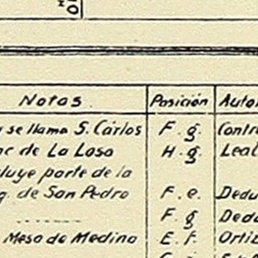 Notas. Posición Auto
se llama S. Cárlos F. g. Contr
de La Losa H. g. Leal
luye parte de la
g. de San Pedro F. e. Dedu
F. g Dedu
Meso de Medina E. f. Ortiz